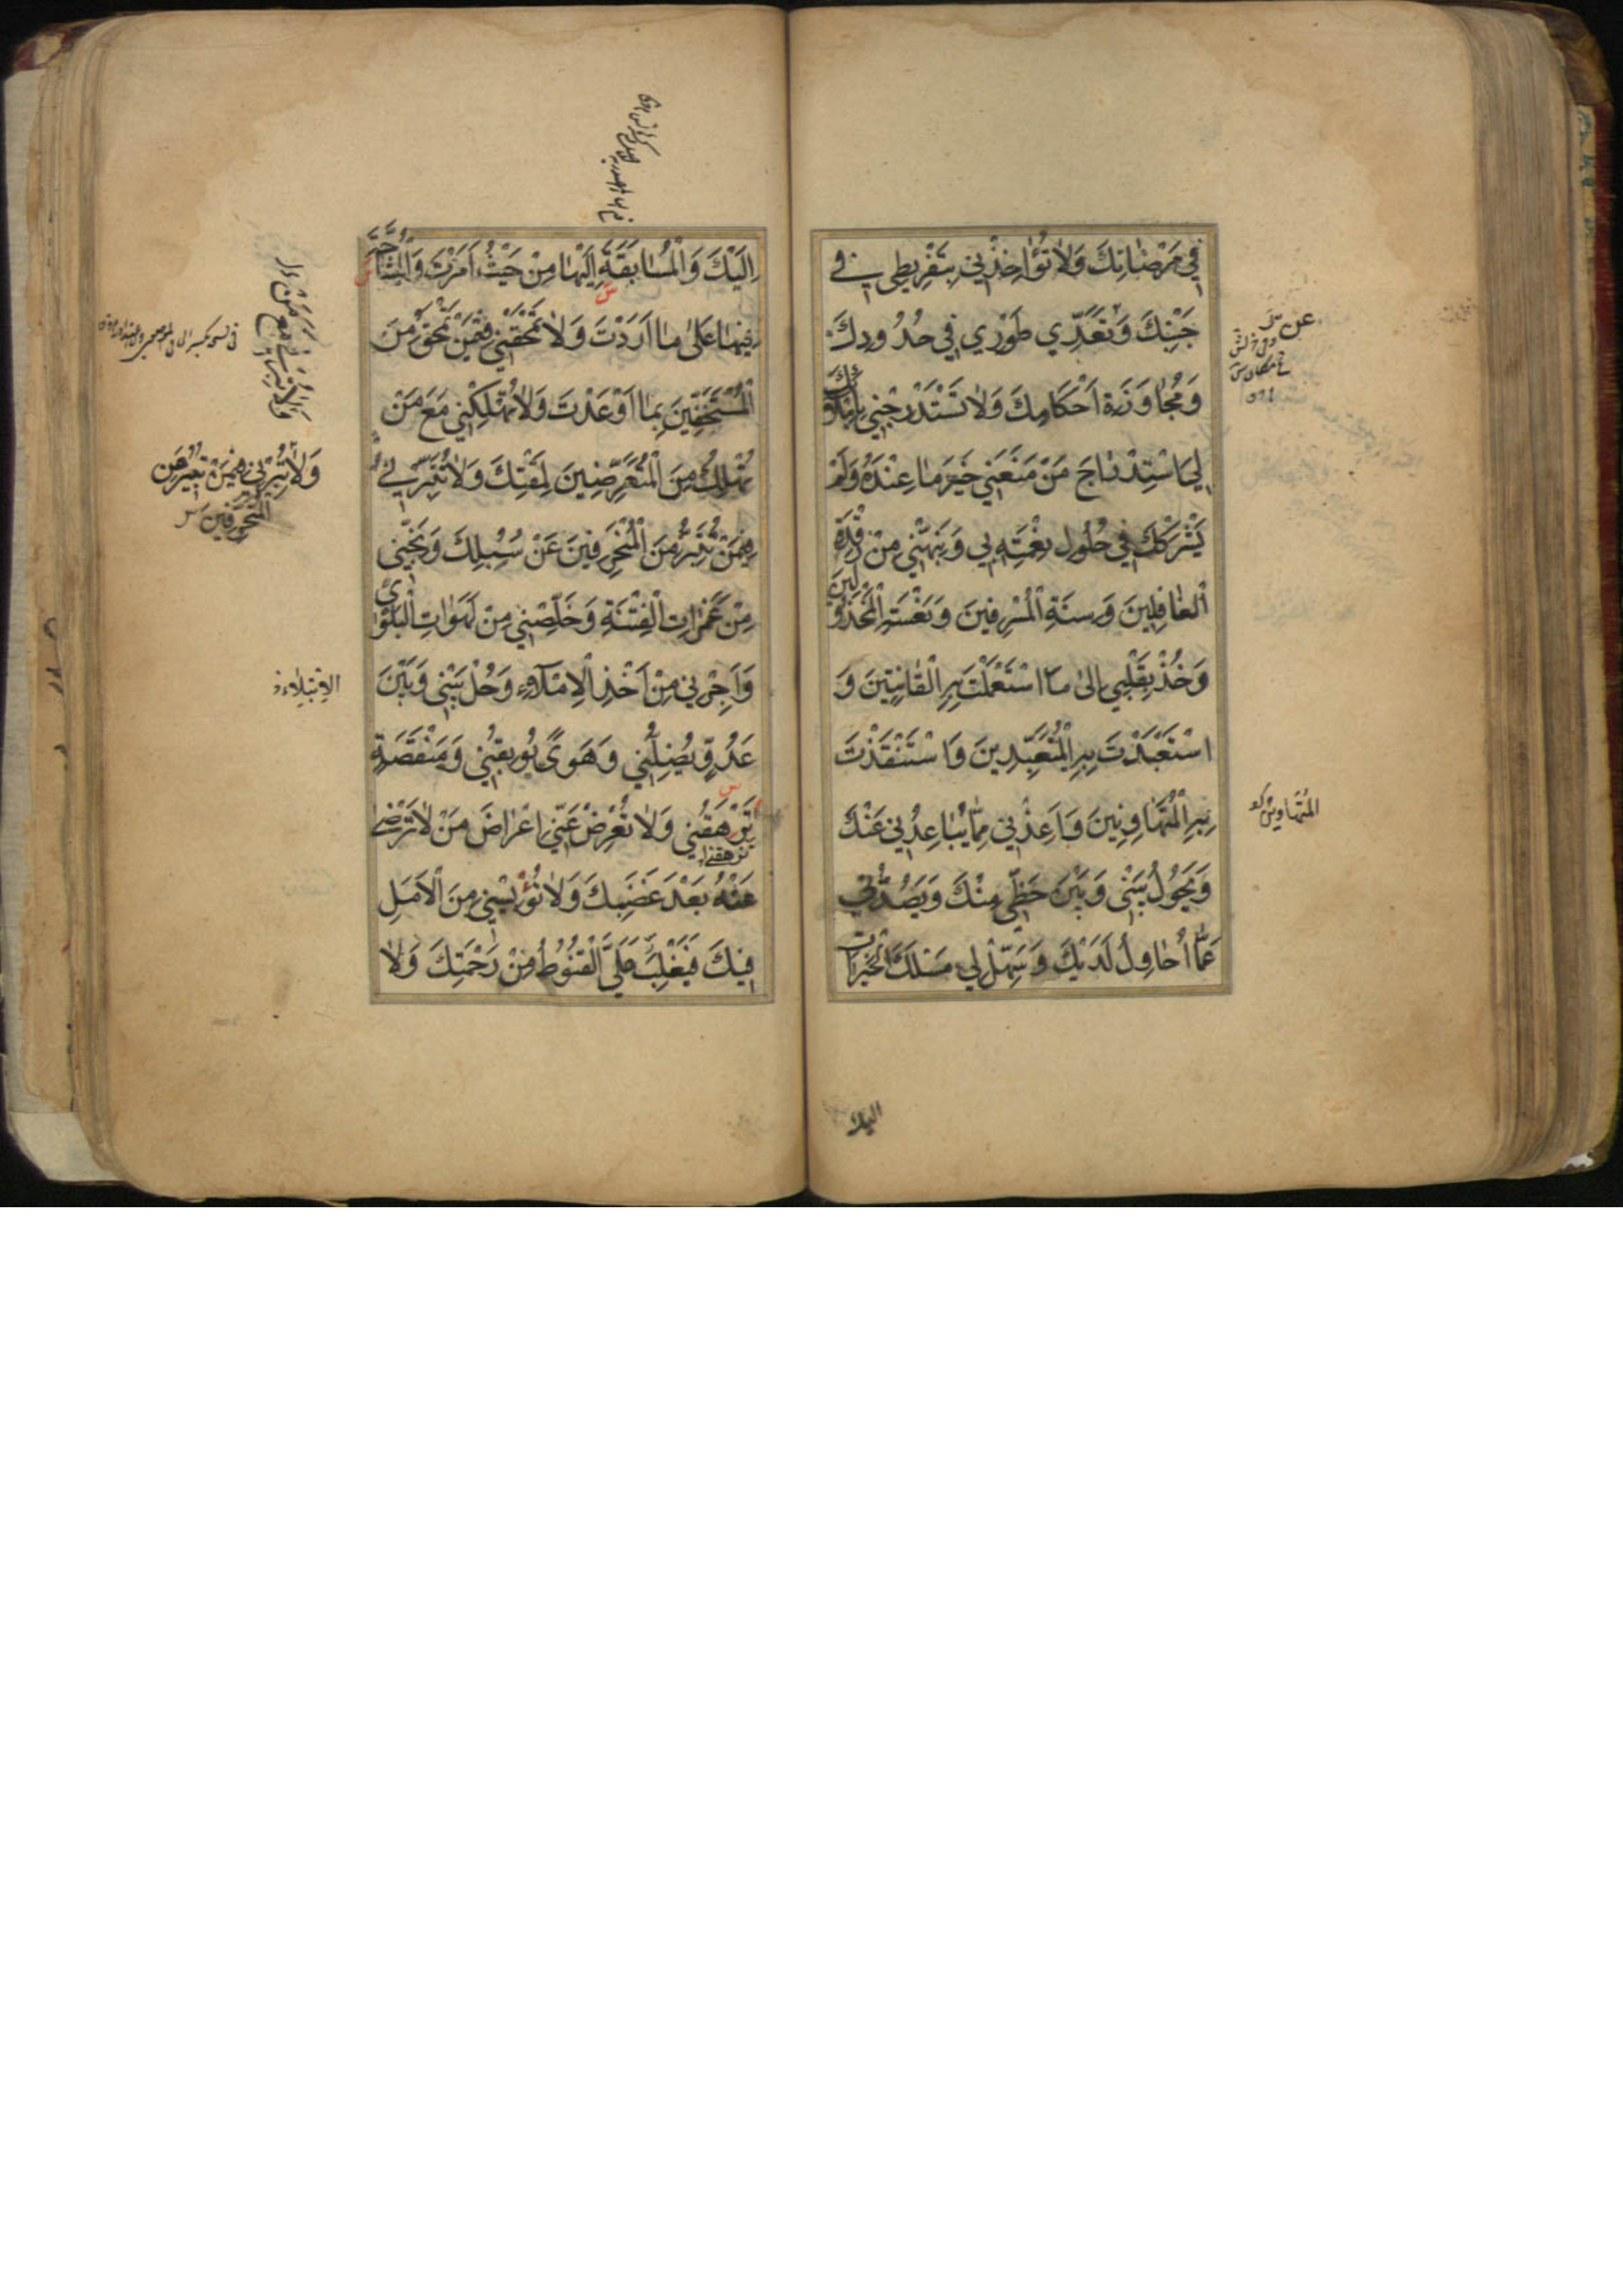 فِي مَرْضَاتِكَ وَلَا تُؤَاخِذْنِي بِتَفْرِيطِي فِي
جَنْبِكَ وَتَعَدِّي طَوْرِي فِي حُدُودِكَ
وَمُجَاوَزَةِ أَحْكَامِكَ وَلَا تَسْتَدْرِجْنِي بِإِمْلَائِكَ
لِي اسْتِدْرَاجَ مَنْ مَنَعَنِي خَيْرَ مَا عِنْدَهُ وَلَمْ
يَشْرَكْكَ فِي حُلُولِ نِعْمَتِهِ بِي وَنَبِّهْنِي مِنْ رَقْدَةِ
الْغَافِلِينَ وَسِنَةِ الْمُسْرِفِينَ وَنَعْسَةِ الْمَخْذُولِينَ
وَخُذْ بِقَلْبِي إِلَى مَا اسْتَعْمَلْتَ بِهِ الْقَانِتِينَ وَ
اسْتَعْبَدْتَ بِهِ الْمُتَعَبِّدِينَ وَاسْتَنْقَذْتَ
بِهِ الْمُتَهَاوِنِينَ وَأَعِذْنِي مِمَّا يُبَاعِدُنِي عَنْكَ
وَيَحُولُ بَيْنِي وَبَيْنَ حَظِّي مِنْكَ وَيَصُدُّنِي
عَمَّا أُحَاوِلُ لَدَيْكَ وَسَهِّلْ لِي مَسْلَكَ الْخَيْرَاتِ
عن
إِلَيْكَ وَالْمُسَابَقَةِ إِلَيْهَا مِنْ حَيْثُ أَمَرْتَ وَالْمُشَاحَّةَ
فِيهَا عَلَى مَا أَرَدْتَ وَلَا تَمْحَقْنِي فِيمَنْ تَمْحَقُ مِنَ
الْمُسْتَخِفِّينَ بِمَا أَوْعَدْتَ وَلَا تُهْلِكْنِي مَعَ مَنْ
تُهْلِكُ مِنَ الْمُتَعَرِّضِينَ لِمَقْتِكَ وَلَا تُتَبِّرْنِي
فِيمَنْ تُتَبِّرُ مِنَ الْمُنْحَرِفِينَ عَنْ سُبُلِكَ وَنَجِّنِي
مِنْ غَمَرَاتِ الْفِتْنَةِ وَخَلِّصْنِي مِنْ لَهَوَاتِ الْبَلْوَى
وَأَجِرْنِي مِنْ أَخْذِ الْإِمْلَاءِ وَحُلْ بَيْنِي وَبَيْنَ
عَدُوٍّ يُضِلُّنِي وَهَوًى يُوبِقُنِي وَمَنْقَصَةٍ
تَرْهَقُنِي وَلَا تُعْرِضْ عَنِّي إِعْرَاضَ مَنْ لَا تَرْضَى
عَنْهُ بَعْدَ غَضَبِكَ وَلَا تُؤْيِسْنِي مِنَ الْأَمَلِ
فِيكَ فَيَغْلِبَ عَلَيَّ الْقُنُوطُ مِنْ رَحْمَتِكَ وَلَا
وَلَا تُبِرْنِي فِيمَنْ تُبِيرُ مِنَ
الْمُنْحَرِفِينَ
الابتلاء
اليك